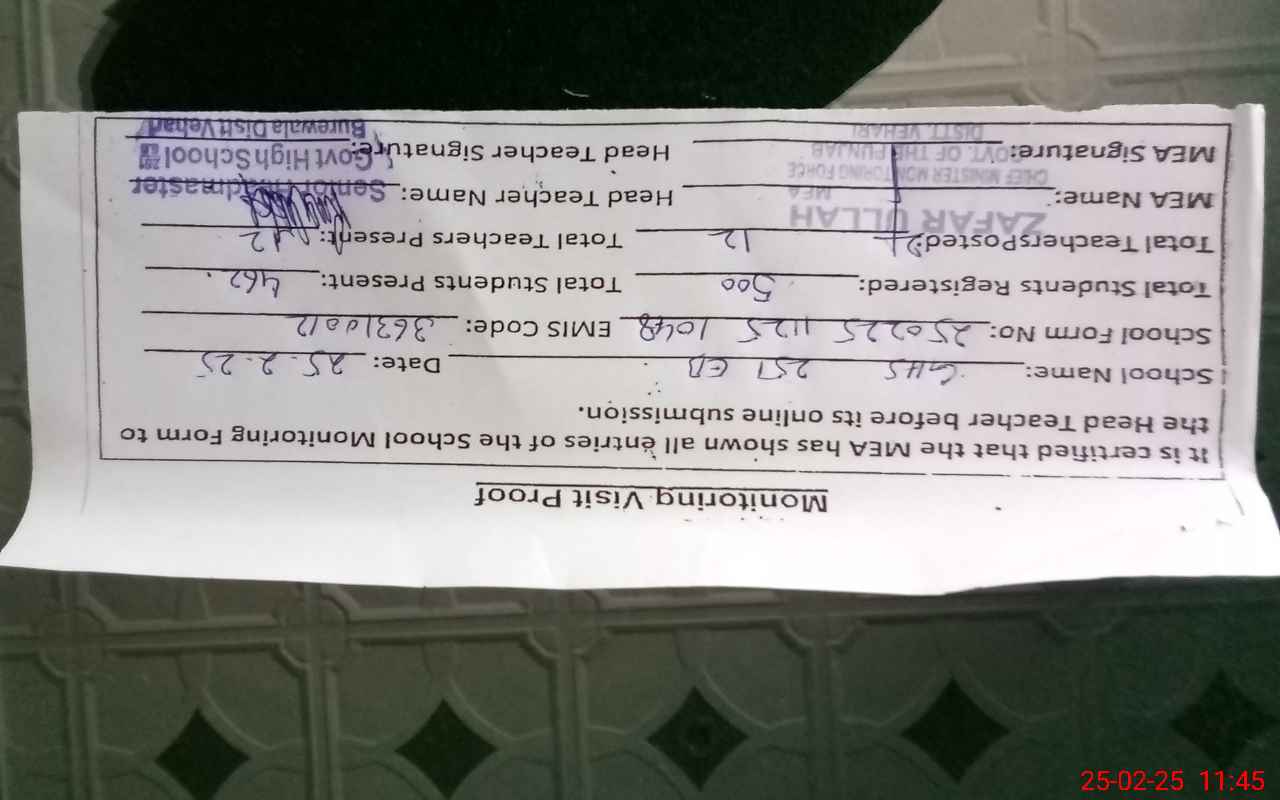 Monitoring Visit Proof
It is certified that the MEA has shown all entries of the School Monitoring Form to
the Head Teacher before its online submission.
School Name: GHS 251 EB Date: 25-2-25
School Form No: 250225 1125 1048 EMIS Code: 36310012
Total Students Registered: 500 Total Students Present: 462
Total Teachers Posted: 12 Total Teachers Present: 12
ZAFAR ULLAH
MEA Name: MEA Head Teacher Name: Senior Headmaster
CHIEF MINISTER MONITORING FORCE
MEA Signature: GOVT. OF THE PUNJAB Head Teacher Signature: Govt High School
DISTT. VEHARI Burewala Distt Vehari
25-02-25 11:45